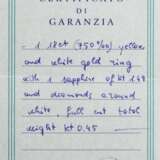 CERTIFICATO
DI
GARANZIA
- 1 18ct (750‰) yellow
and white gold ring
with 1 sapphire of kt 1.49
and diamonds around
white, full cut total
weight kt 0.45 -